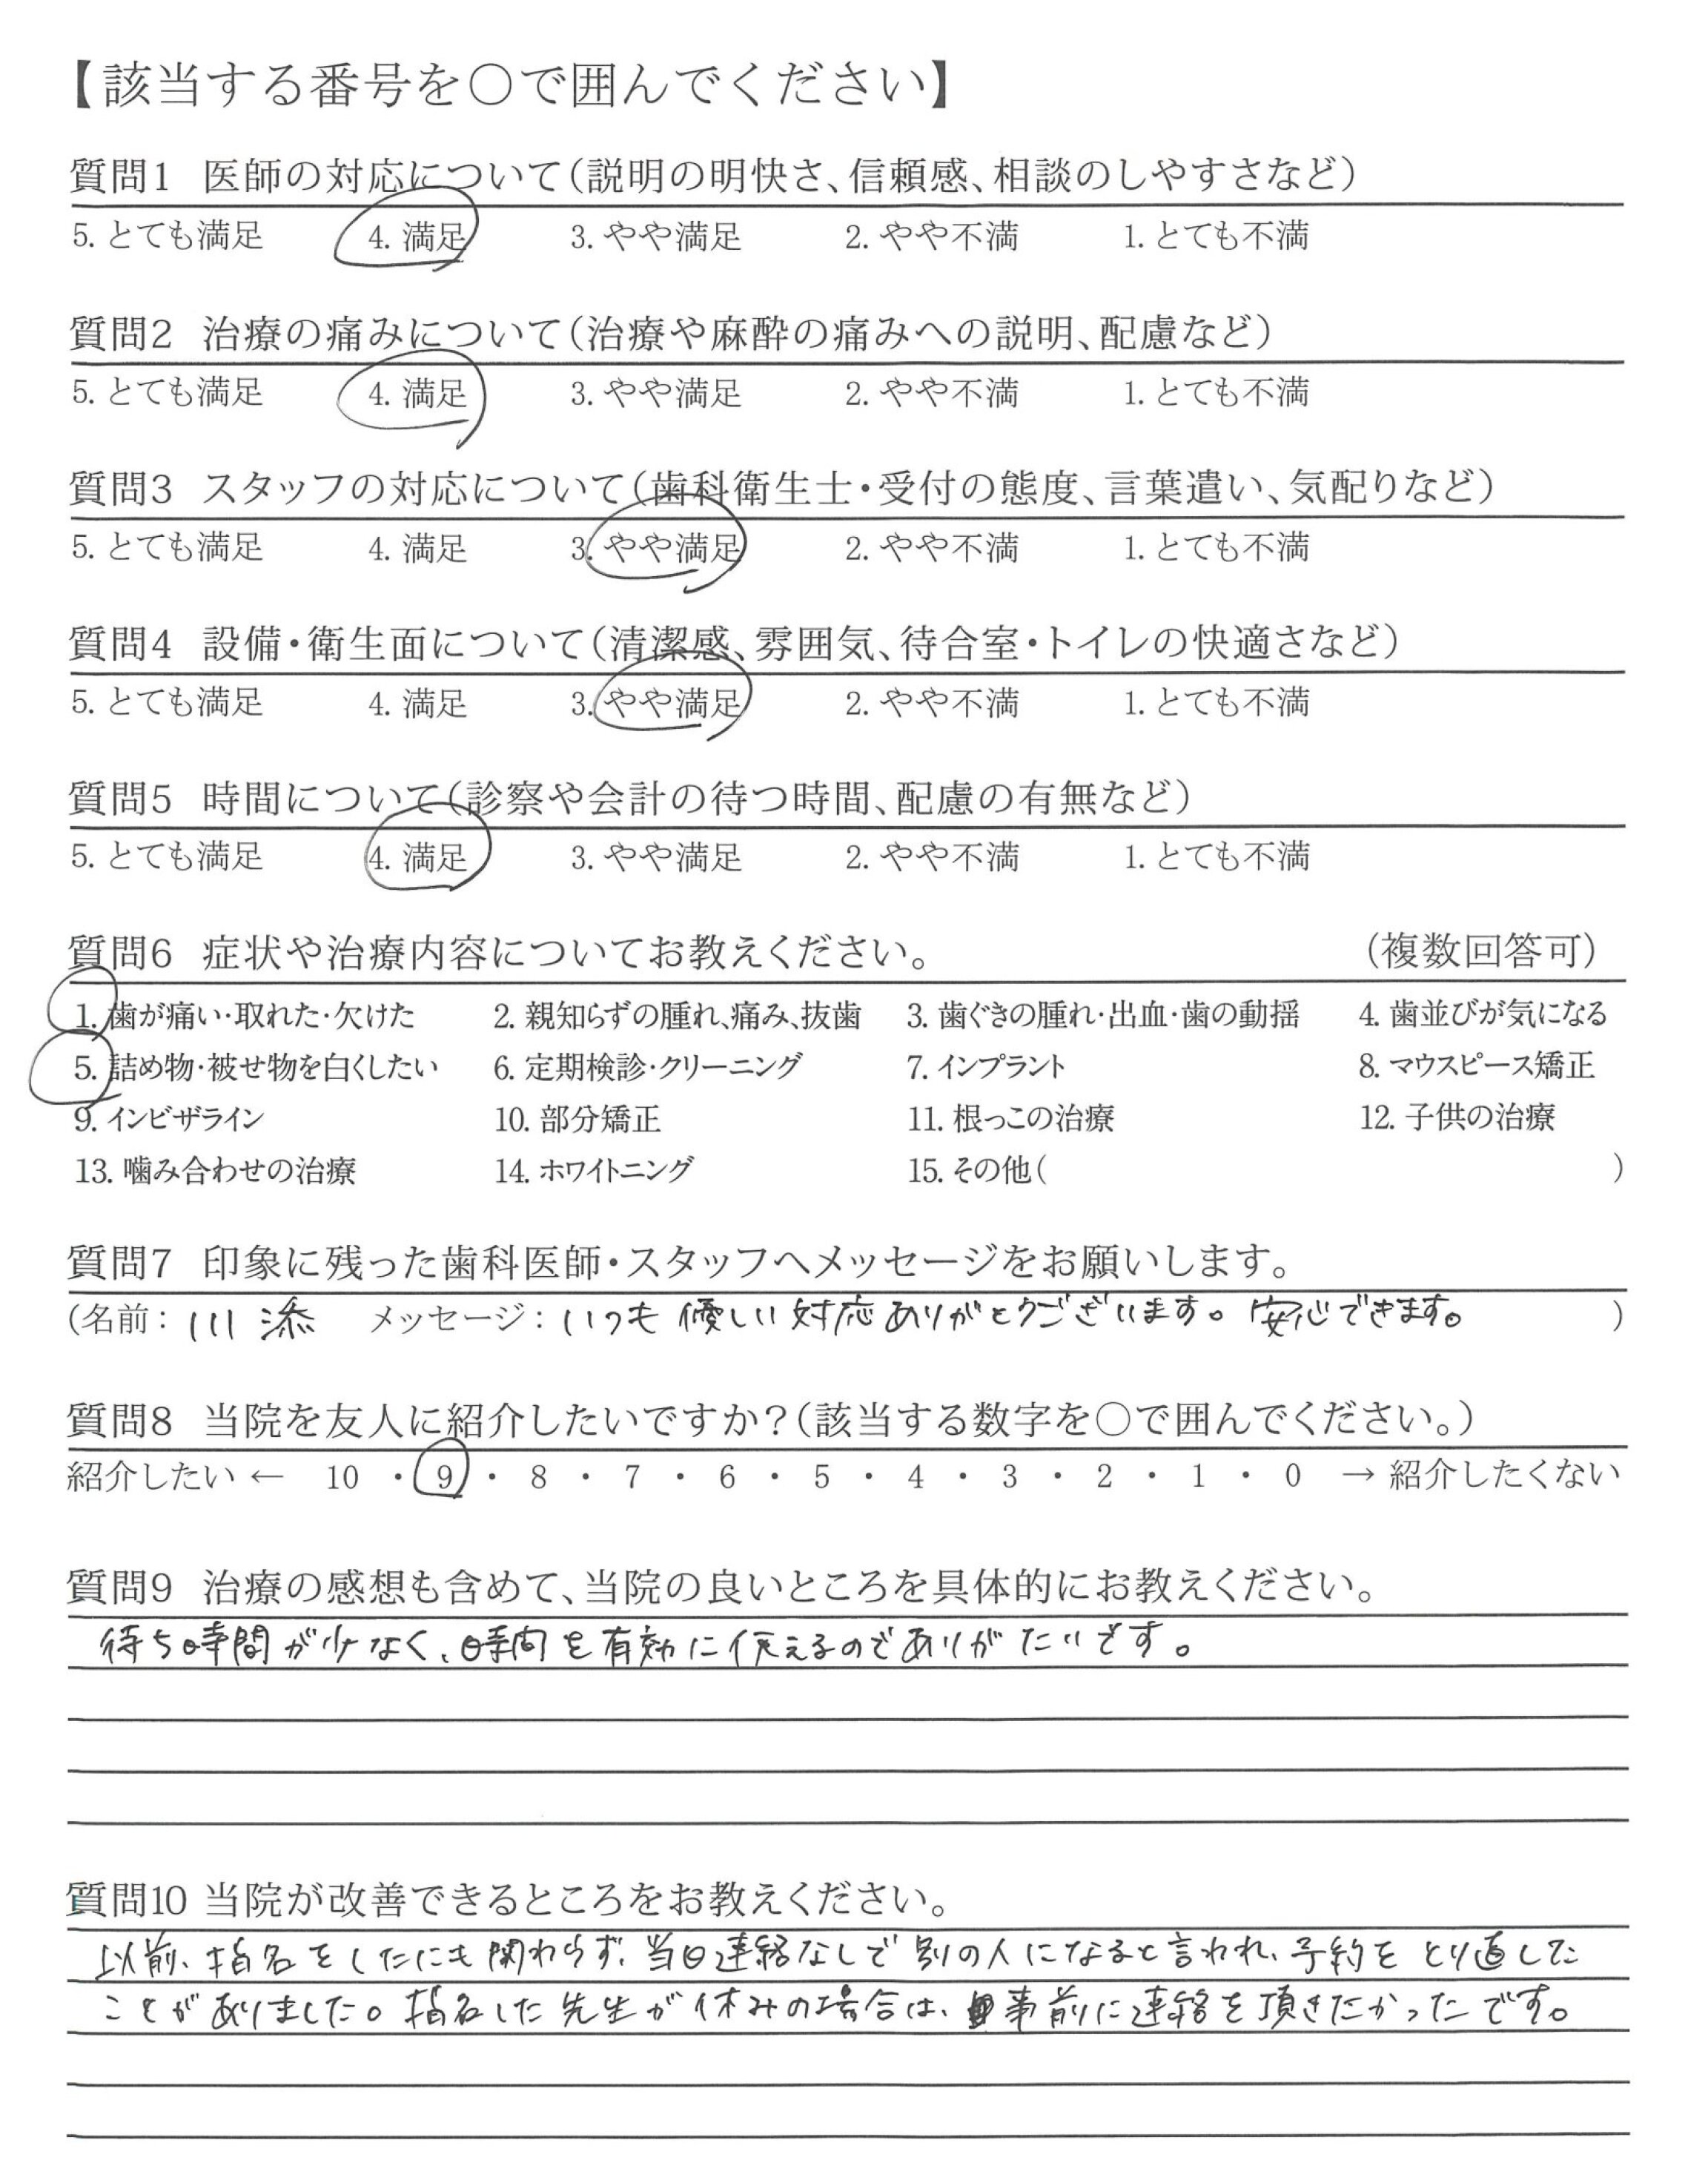 【該当する番号を○で囲んでください】
質問1 医師の対応について(説明の明快さ、信頼感、相談のしやすさなど)
5. とても満足 4. 満足 3. やや満足 2. やや不満 1. とても不満
質問2 治療の痛みについて(治療や麻酔の痛みへの説明、配慮など)
5. とても満足 4. 満足 3. やや満足 2. やや不満 1. とても不満
質問3 スタッフの対応について(歯科衛生士・受付の態度、言葉遣い、気配りなど)
5. とても満足 4. 満足 3. やや満足 2. やや不満 1. とても不満
質問4 設備・衛生面について(清潔感、雰囲気、待合室・トイレの快適さなど)
5. とても満足 4. 満足 3. やや満足 2. やや不満 1. とても不満
質問5 時間について(診察や会計の待つ時間、配慮の有無など)
5. とても満足 4. 満足 3. やや満足 2. やや不満 1. とても不満
質問6 症状や治療内容についてお教えください。 (複数回答可)
1. 歯が痛い・取れた・欠けた 2. 親知らずの腫れ、痛み、抜歯 3. 歯ぐきの腫れ・出血・歯の動揺 4. 歯並びが気になる
5. 詰め物・被せ物を白くしたい 6. 定期検診・クリーニング 7. インプラント 8. マウスピース矯正
9. インビザライン 10. 部分矯正 11. 根っこの治療 12. 子供の治療
13. 噛み合わせの治療 14. ホワイトニング 15. その他( )
質問7 印象に残った歯科医師・スタッフへメッセージをお願いします。
(名前: 川添 メッセージ: いつも優しい対応ありがとうございます。安心できます。 )
質問8 当院を友人に紹介したいですか?(該当する数字を○で囲んでください。)
紹介したい ← 10 ・ 9 ・ 8 ・ 7 ・ 6 ・ 5 ・ 4 ・ 3 ・ 2 ・ 1 ・ 0 → 紹介したくない
質問9 治療の感想も含めて、当院の良いところを具体的にお教えください。
待ち時間が少なく、時間を有効に使えるのでありがたいです。
質問10 当院が改善できるところをお教えください。
以前、指名をしたにも関わらず、当日連絡なしで別の人になると言われ、予約をとり直した
ことがありました。指名した先生が休みの場合は、事前に連絡を頂きたかったです。